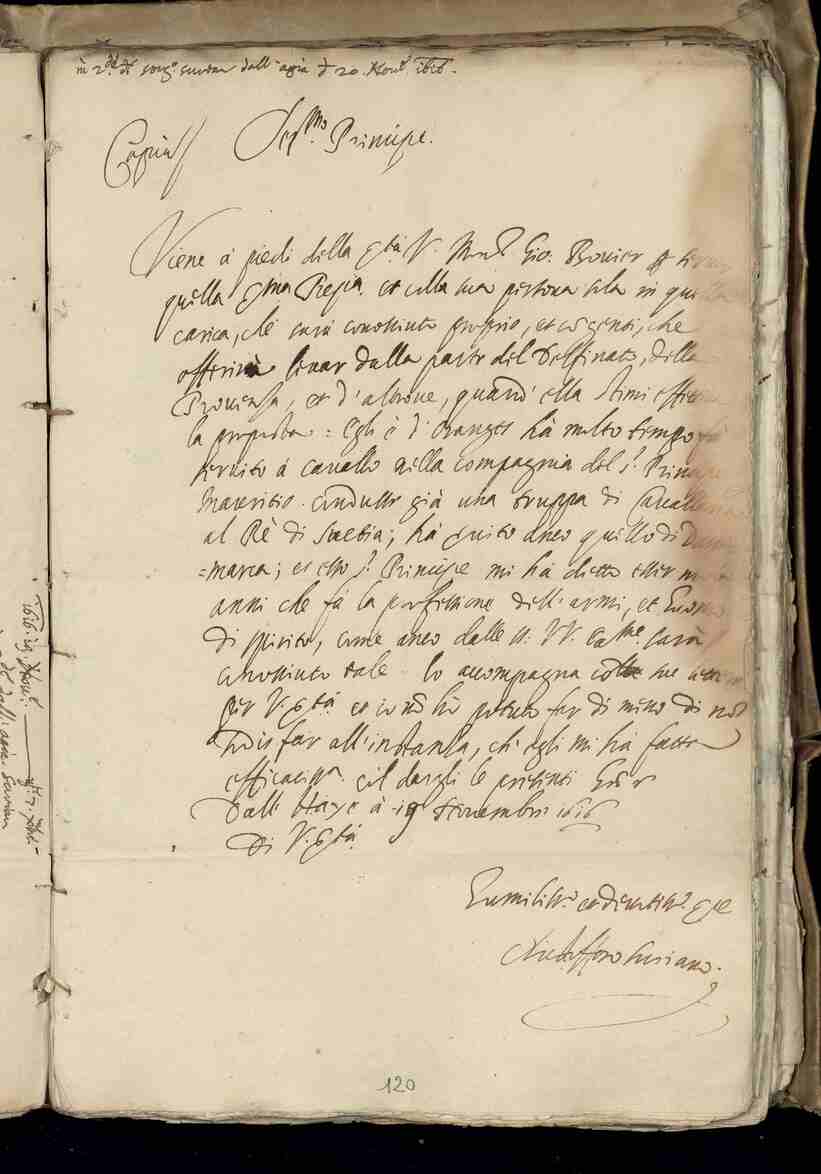 in 2.da di sorg.o suriana dall'Agia di 20. Nov.e 1616.
Copia Ser.mo Principe.
Viene à piedi della S.tà V. Mons.r Gio. Bouier p servir
quella Ser.ma Rep.ca et colla sua persona sola in quella
carica, che sarà conosciuta proprio, et cõ genti, che
offerirà levar dalla parte del Delfinato, della
Provenza, et d'altrove, quand'ella stimi
la proposta: Egli è d'Oranges hà molto tempo
servito à cavallo nella compagnia del S.r Principe
Mauritio. Condusse già una truppa di Cavalleria
al Rè di Suetia; hà servito anco quello di Dani
=marca; et esso S.r Principe mi hà detto esser molti
anni che fà la professione dell'armi, et huomo
di spirito, come anco dalle SS. VV. Ecc.me sarà
conosciuto tale. lo accompagna cõ sue lettere
per V. S.tà. et io nõ hò potuto far di meno di nõ
sodisfar all'instanza, ch'egli mi hà fatto
efficaciss.a col dargli le presenti Gratie
Dall' Haya à 19 Novembre 1616
Di V. S.tà
Humiliss.o et devotiss.o Ser.e
Christofforo Suriano.
120
1616. 19 Nov.e